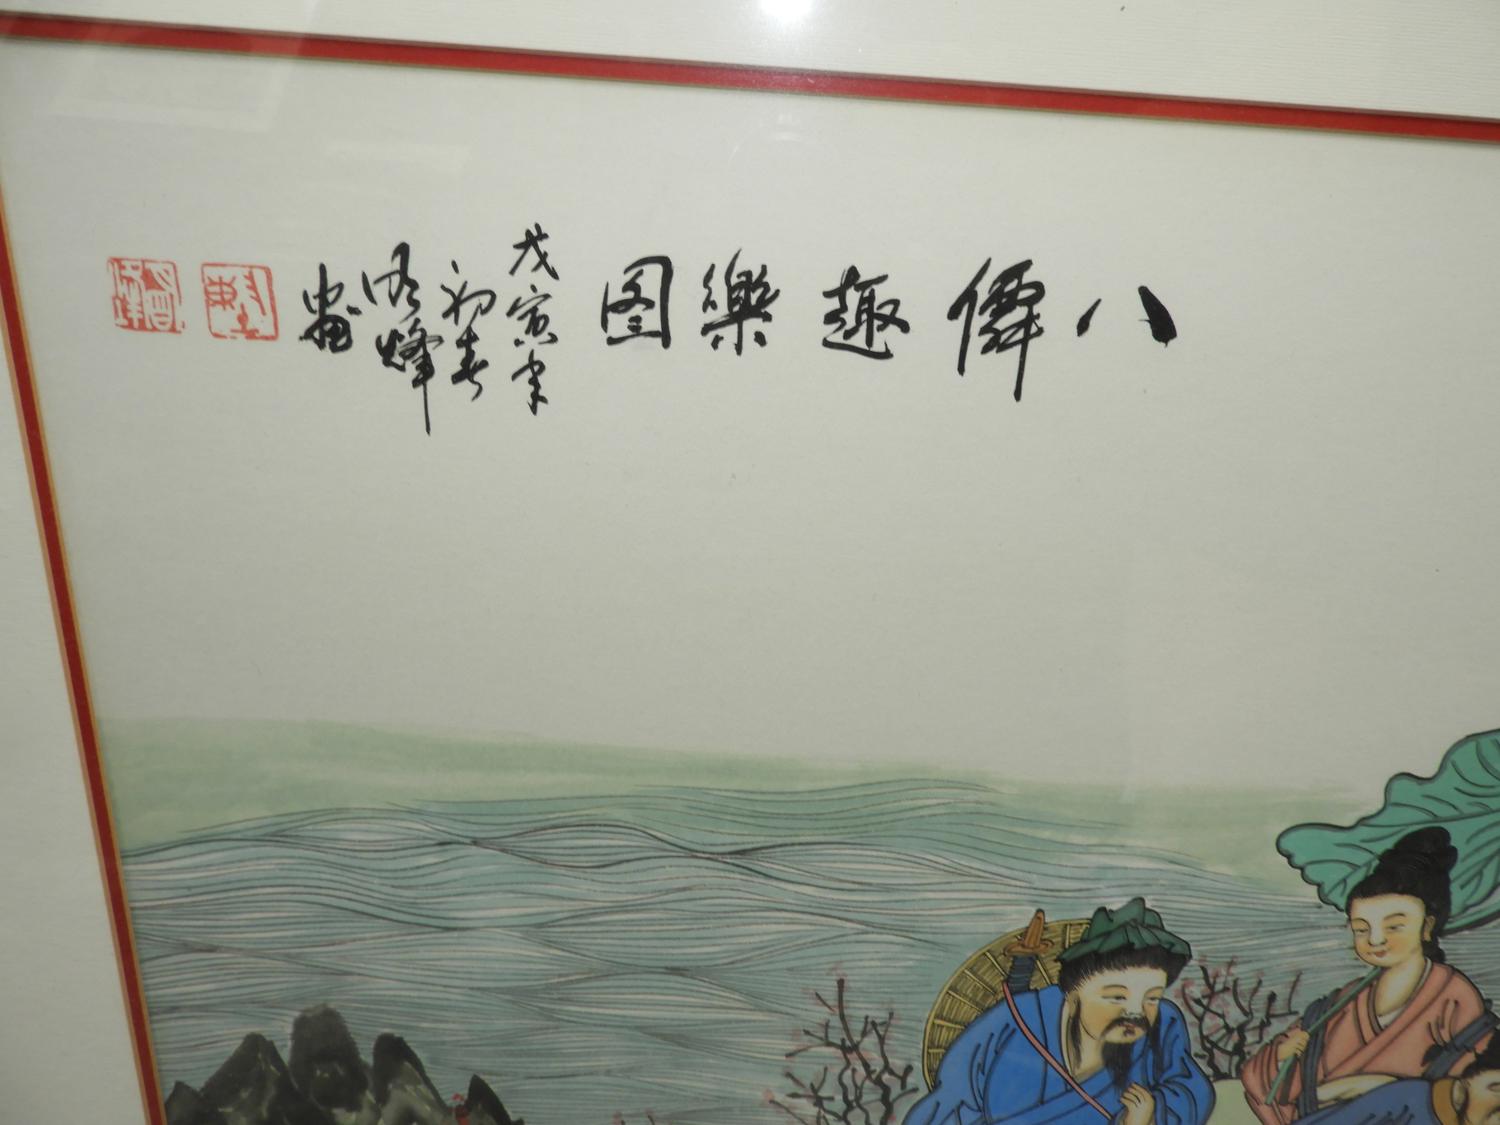 八僊趣樂图
戊寅年
初春
烽
畫